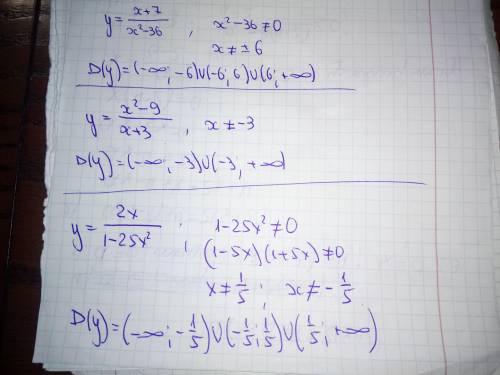 y = \frac{x+7}{x²-36} , x²-36≠0
x≠±6
D(y)=(-∞;-6)∪(-6;6)∪(6;+∞)
y = \frac{x²-9}{x+3} , x≠-3
D(y)=(-∞;-3)∪(-3;+∞)
y = \frac{2x}{1-25x²} ; 1-25x²≠0
(1-5x)(1+5x)≠0
x≠\frac{1}{5} ; x≠-\frac{1}{5}
D(y)=(-∞;-\frac{1}{5})∪(-\frac{1}{5};\frac{1}{5})∪(\frac{1}{5};+∞)